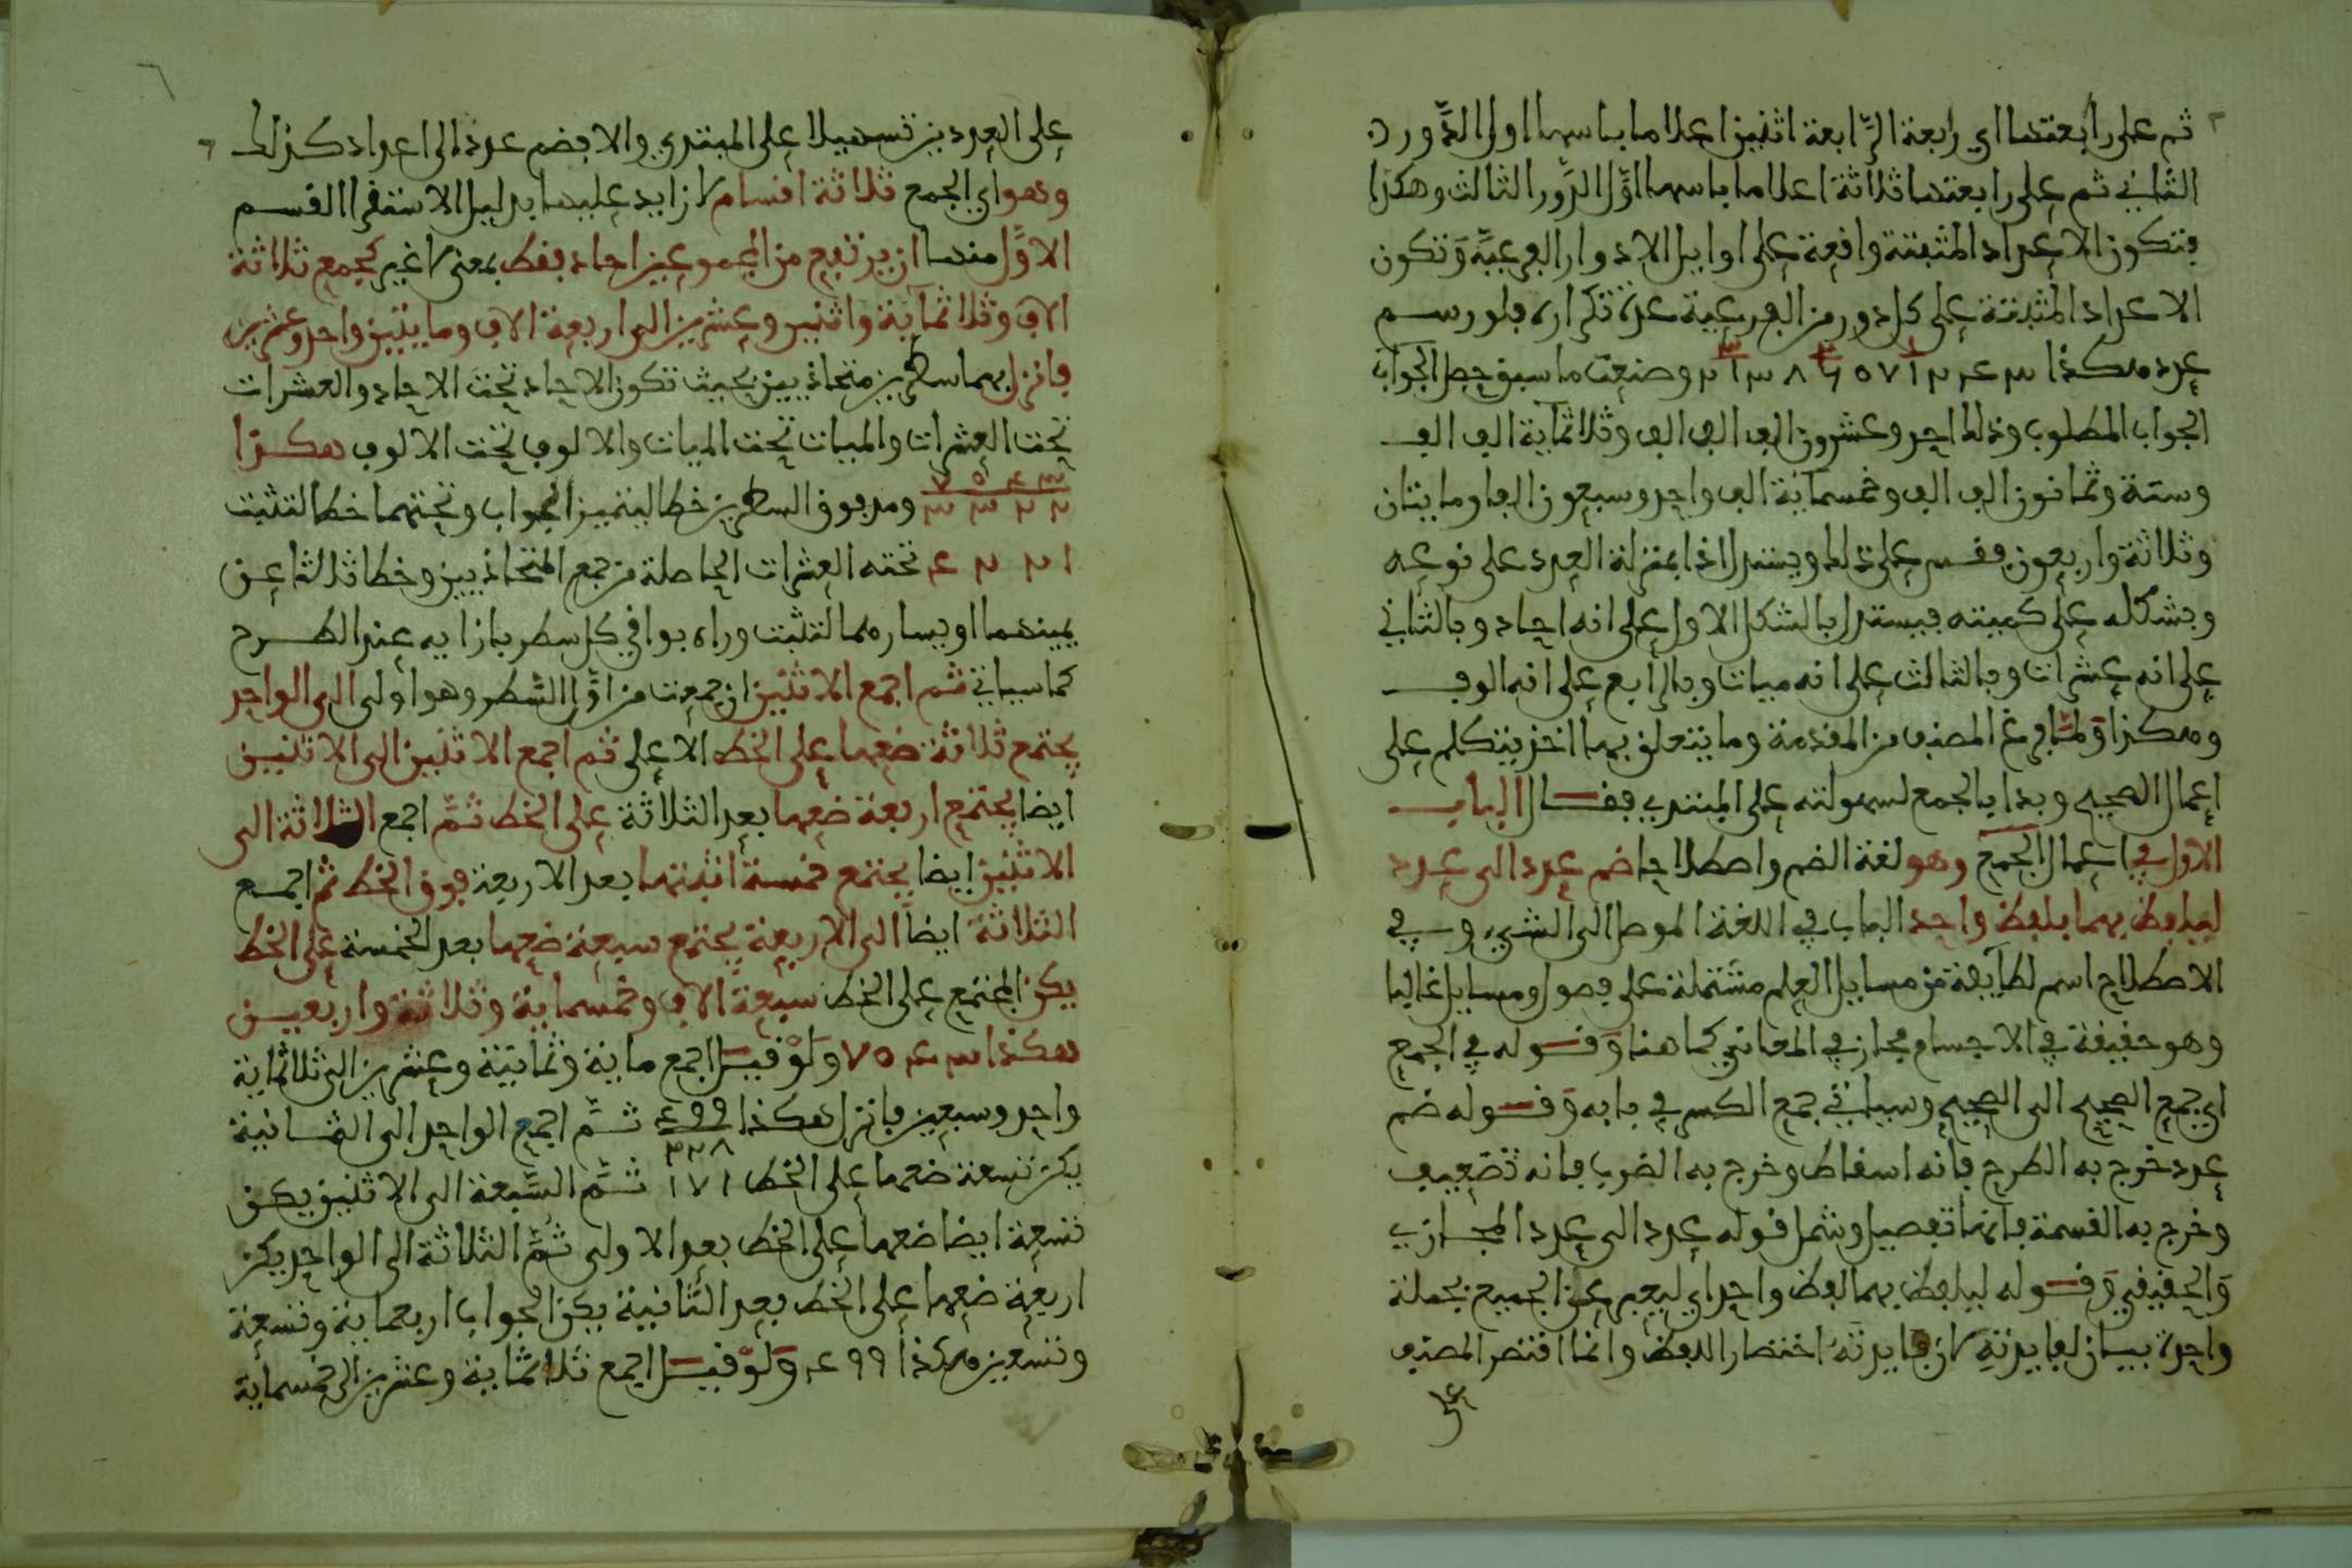 ثم على رابعتها اي رابعة الرابعة اثنين اعلاما باسها اول الدور
الثاني ثم على رابعتها ثلاثة اعلاما باسها اول الدور الثالث وهكذا
فتكون الاعداد المثبتة واقعة على اوايل الادوار الفرعية وتكون
الاعداد المثبتة على كل دور من الفرعية عدة تكراره فلو رسم
عدد هكذا ٣ ٤ ٢ ١ ٧ ٥ ٦ ٨ ٣ ١ ٢ وصنعت ما سبق حصل الجواب
الجواب المطلوب وذلك احد وعشرون الف الف الف وثلاثماية الف الف
وستة وثمانون الف الف وخمسماية الف واحد وسبعون الفا ومايتان
وثلاثة واربعون فقس على ذلك ويستدل اذا بمنزلة العدد على نوعه
وبشكله على كميته فيستدل بالشكل الاول على انه احاد وبالثاني
على انه عشرات وبالثالث على انه ميات وبالرابع على انه الوف
وهكذا ولما فرغ المصنف من المقدمة وما يتعلق بها اخذ يتكلم على
اعمال الصحيح وبدا بالجمع لسهولته على المبتدي فقال الباب
الاول في اعمال الجمع وهو لغة الضم واصطلاحا ضم عدد الى عدد
ليلفظ بهما بلفظ واحد الباب في اللغة الموصل الى الشيء وفي
الاصطلاح اسم لطايفة من مسايل العلم مشتملة على فصول ومسايل غالبا
وهو حقيقة في الاجسام مجاز في المعاني كما هنا وقوله في الجمع
اي جمع الصحيح الى الصحيح وسياتي جمع الكسر في بابه وقوله ضم
عدد خرج به الطرح فانه اسقاط وخرج به الضرب فانه تضعيف
وخرج به القسمة فانها تفصيل وشمل قوله عدد الى عدد المجازي
والحقيقي وقوله ليلفظ بهما بلفظ واحد اي ليعبر عن الجميع بجملة
واحدة بيان لفايدته لان فايدته اختصار اللفظ وانما اقتصر المصنف
على
على العددين تسهيلا على المبتدي والا فضم عدد الى اعداد كذلك
وهو اي الجمع ثلاثة اقسام لا زايد عليها بدليل الاستقرا القسم
الاول منها ان يرتفع من المجموعين احاد فقط بمعنى لا غير كجمع ثلاثة
الاف وثلاثماية واثنين وعشرين الى اربعة الاف ومايتين واحد وعشرين
فانزل بهما سطرين متحاذيين بحيث تكون الاحاد تحت الاحاد والعشرات
تحت العشرات والميات تحت الميات والالوف تحت الالوف هكذا
٣ ٤ ٥ ٧
٢ ٢ ٣ ٣ ومد فوق السطرين خطا ليتميز الجواب وتحتهما خطا لتثبت
١ ٢ ٢ ٤ تحته العشرات الحاصلة من جمع المتحاذيين وخطا ثالثا عن
يمينهما او يسارهما لتثبت وراه بواقي كل سطر بازايه عند الطرح
كما سياتي ثم اجمع الاثنين ان جمعت من اول السطر وهو اولى الى الواحد
يجتمع ثلاثة ضعها على الخط الاعلى ثم اجمع الاثنين الى الاثنين
ايضا يجتمع اربعة ضعها بعد الثلاثة على الخط ثم اجمع الثلاثة الى
الاثنين ايضا يجتمع خمسة اثبتها بعد الاربعة فوق الخط ثم اجمع
الثلاثة ايضا الى الاربعة يجتمع سبعة ضعها بعد الخمسة على الخط
يكن المجتمع على الخط سبعة الاف وخمسماية وثلاثة واربعين
هكذا ٣ ٤ ٥ ٧ ولو قيل اجمع ماية وثمانية وعشرين الى ثلاثماية
واحد وسبعين فانزل هكذا ٤٩٩ ثم اجمع الواحد الى الثمانية
٣٢٨
يكن تسعة ضعها على الخط ١٧١ ثم السبعة الى الاثنين يكن
تسعة ايضا ضعها على الخط بعد الاولى ثم الثلاثة الى الواحد يكن
اربعة ضعها على الخط بعد الثانية يكن الجواب اربعماية وتسعة
وتسعين هكذا ٤٩٩ ولو قيل اجمع ثلاثماية وعشرين الى خمسماية